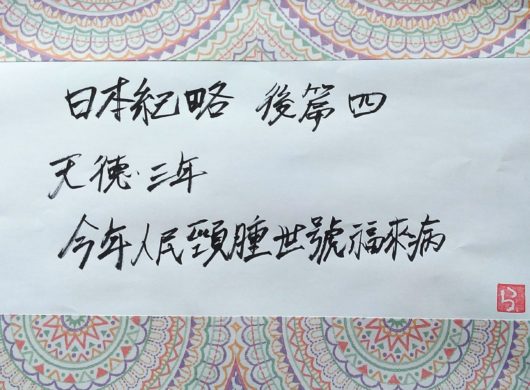 日本紀略 後篇 四
天德·三年
今年人民頸腫世號福來病